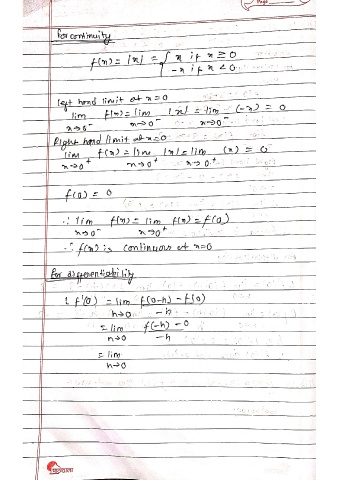 For continuity
f(x) = |x| = { x if x ≥ 0
-x if x < 0
Left hand limit at x = 0
lim x→0⁻ f(x) = lim x→0⁻ |x| = lim x→0⁻ (-x) = 0
Right hand limit at x = 0
lim x→0⁺ f(x) = lim x→0⁺ |x| = lim x→0⁺ (x) = 0
f(0) = 0
∴ lim x→0⁻ f(x) = lim x→0⁺ f(x) = f(0)
∴ f(x) is continuous at x=0
For differentiability
L f'(0) = lim h→0 f(0-h) - f(0) / -h
= lim h→0 f(-h) - 0 / -h
= lim h→0